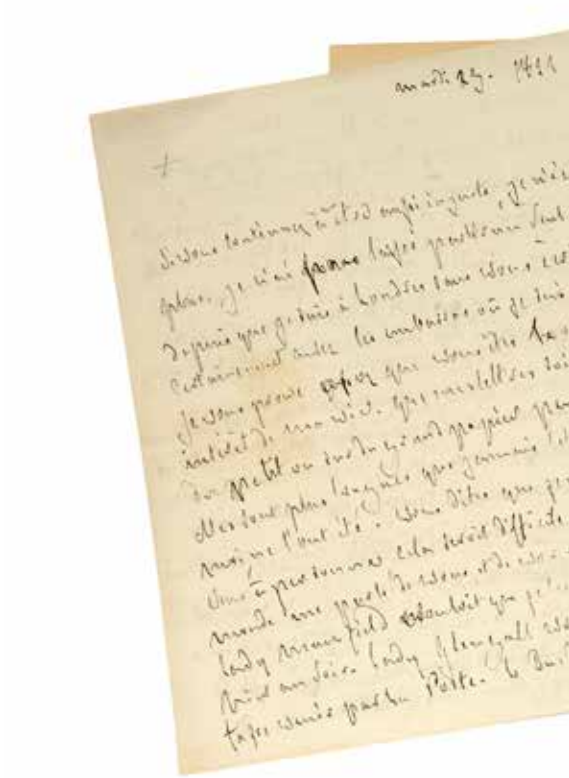 mardi 1822
Si vous continuez à être aussi injuste, je n'écri
plus. je n'ai laissé partir un seul
depuis que je suis à Londres sans vous écri
certainement dans les embarras où je suis
je vous prouve assez que vous êtes le
intérêt de ma vie. que mes lettres soi
du petit ou du grand papier peu
elles sont plus longues que jamais
ne l'ont été. vous dites que je
à personne cela seroit difficile
monde me parle de vous et de
Lady Mansfield vouloit que je
hier au soir. Lady Glengall
par la Poste. le